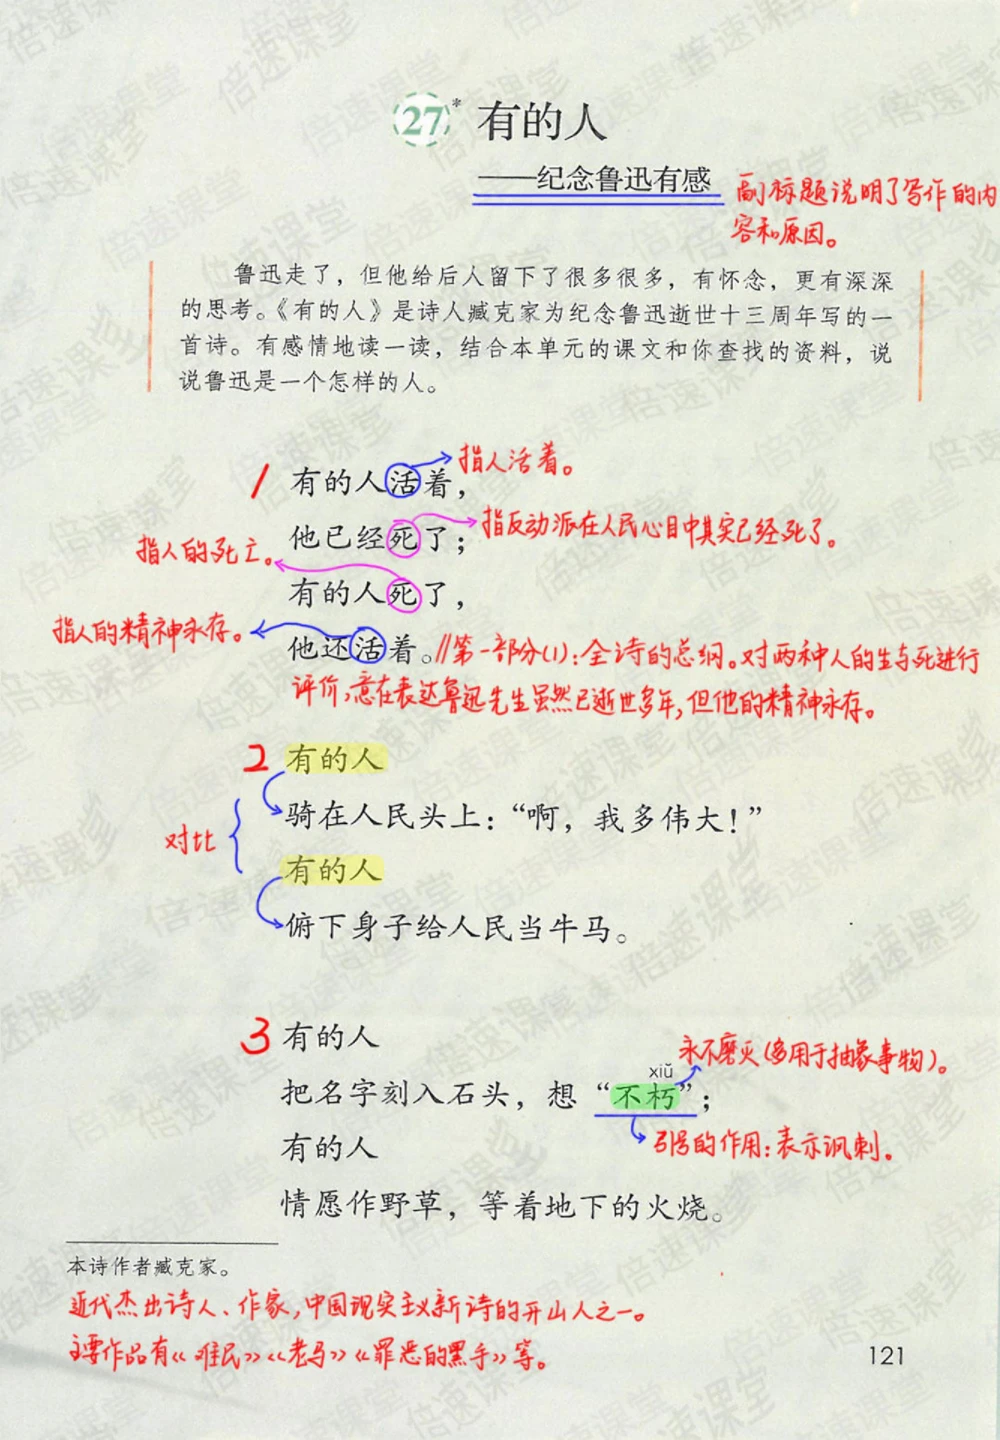 27* 有的人
——纪念鲁迅有感
副标题说明了写作的内
容和原因。
鲁迅走了，但他给后人留下了很多很多，有怀念，更有深深
的思考。《有的人》是诗人臧克家为纪念鲁迅逝世十三周年写的一
首诗。有感情地读一读，结合本单元的课文和你查找的资料，说
说鲁迅是一个怎样的人。
指人活着。
1 有的人活着，
他已经死了；
指反动派在人民心目中其实已经死了。
指人的死亡。
有的人死了，
指人的精神永存。
他还活着。//第一部分(1)：全诗的总纲。对两种人的生与死进行
评价，意在表达鲁迅先生虽然已逝世多年，但他的精神永存。
2 有的人
骑在人民头上：“啊，我多伟大！”
对比
有的人
俯下身子给人民当牛马。
3 有的人
永不磨灭（多用于抽象事物）。
xiǔ
把名字刻入石头，想“不朽”；
有的人
引号的作用：表示讽刺。
情愿作野草，等着地下的火烧。
本诗作者臧克家。
近代杰出诗人、作家，中国现实主义新诗的开山人之一。
主要作品有《难民》《老马》《罪恶的黑手》等。
121
倍速课堂